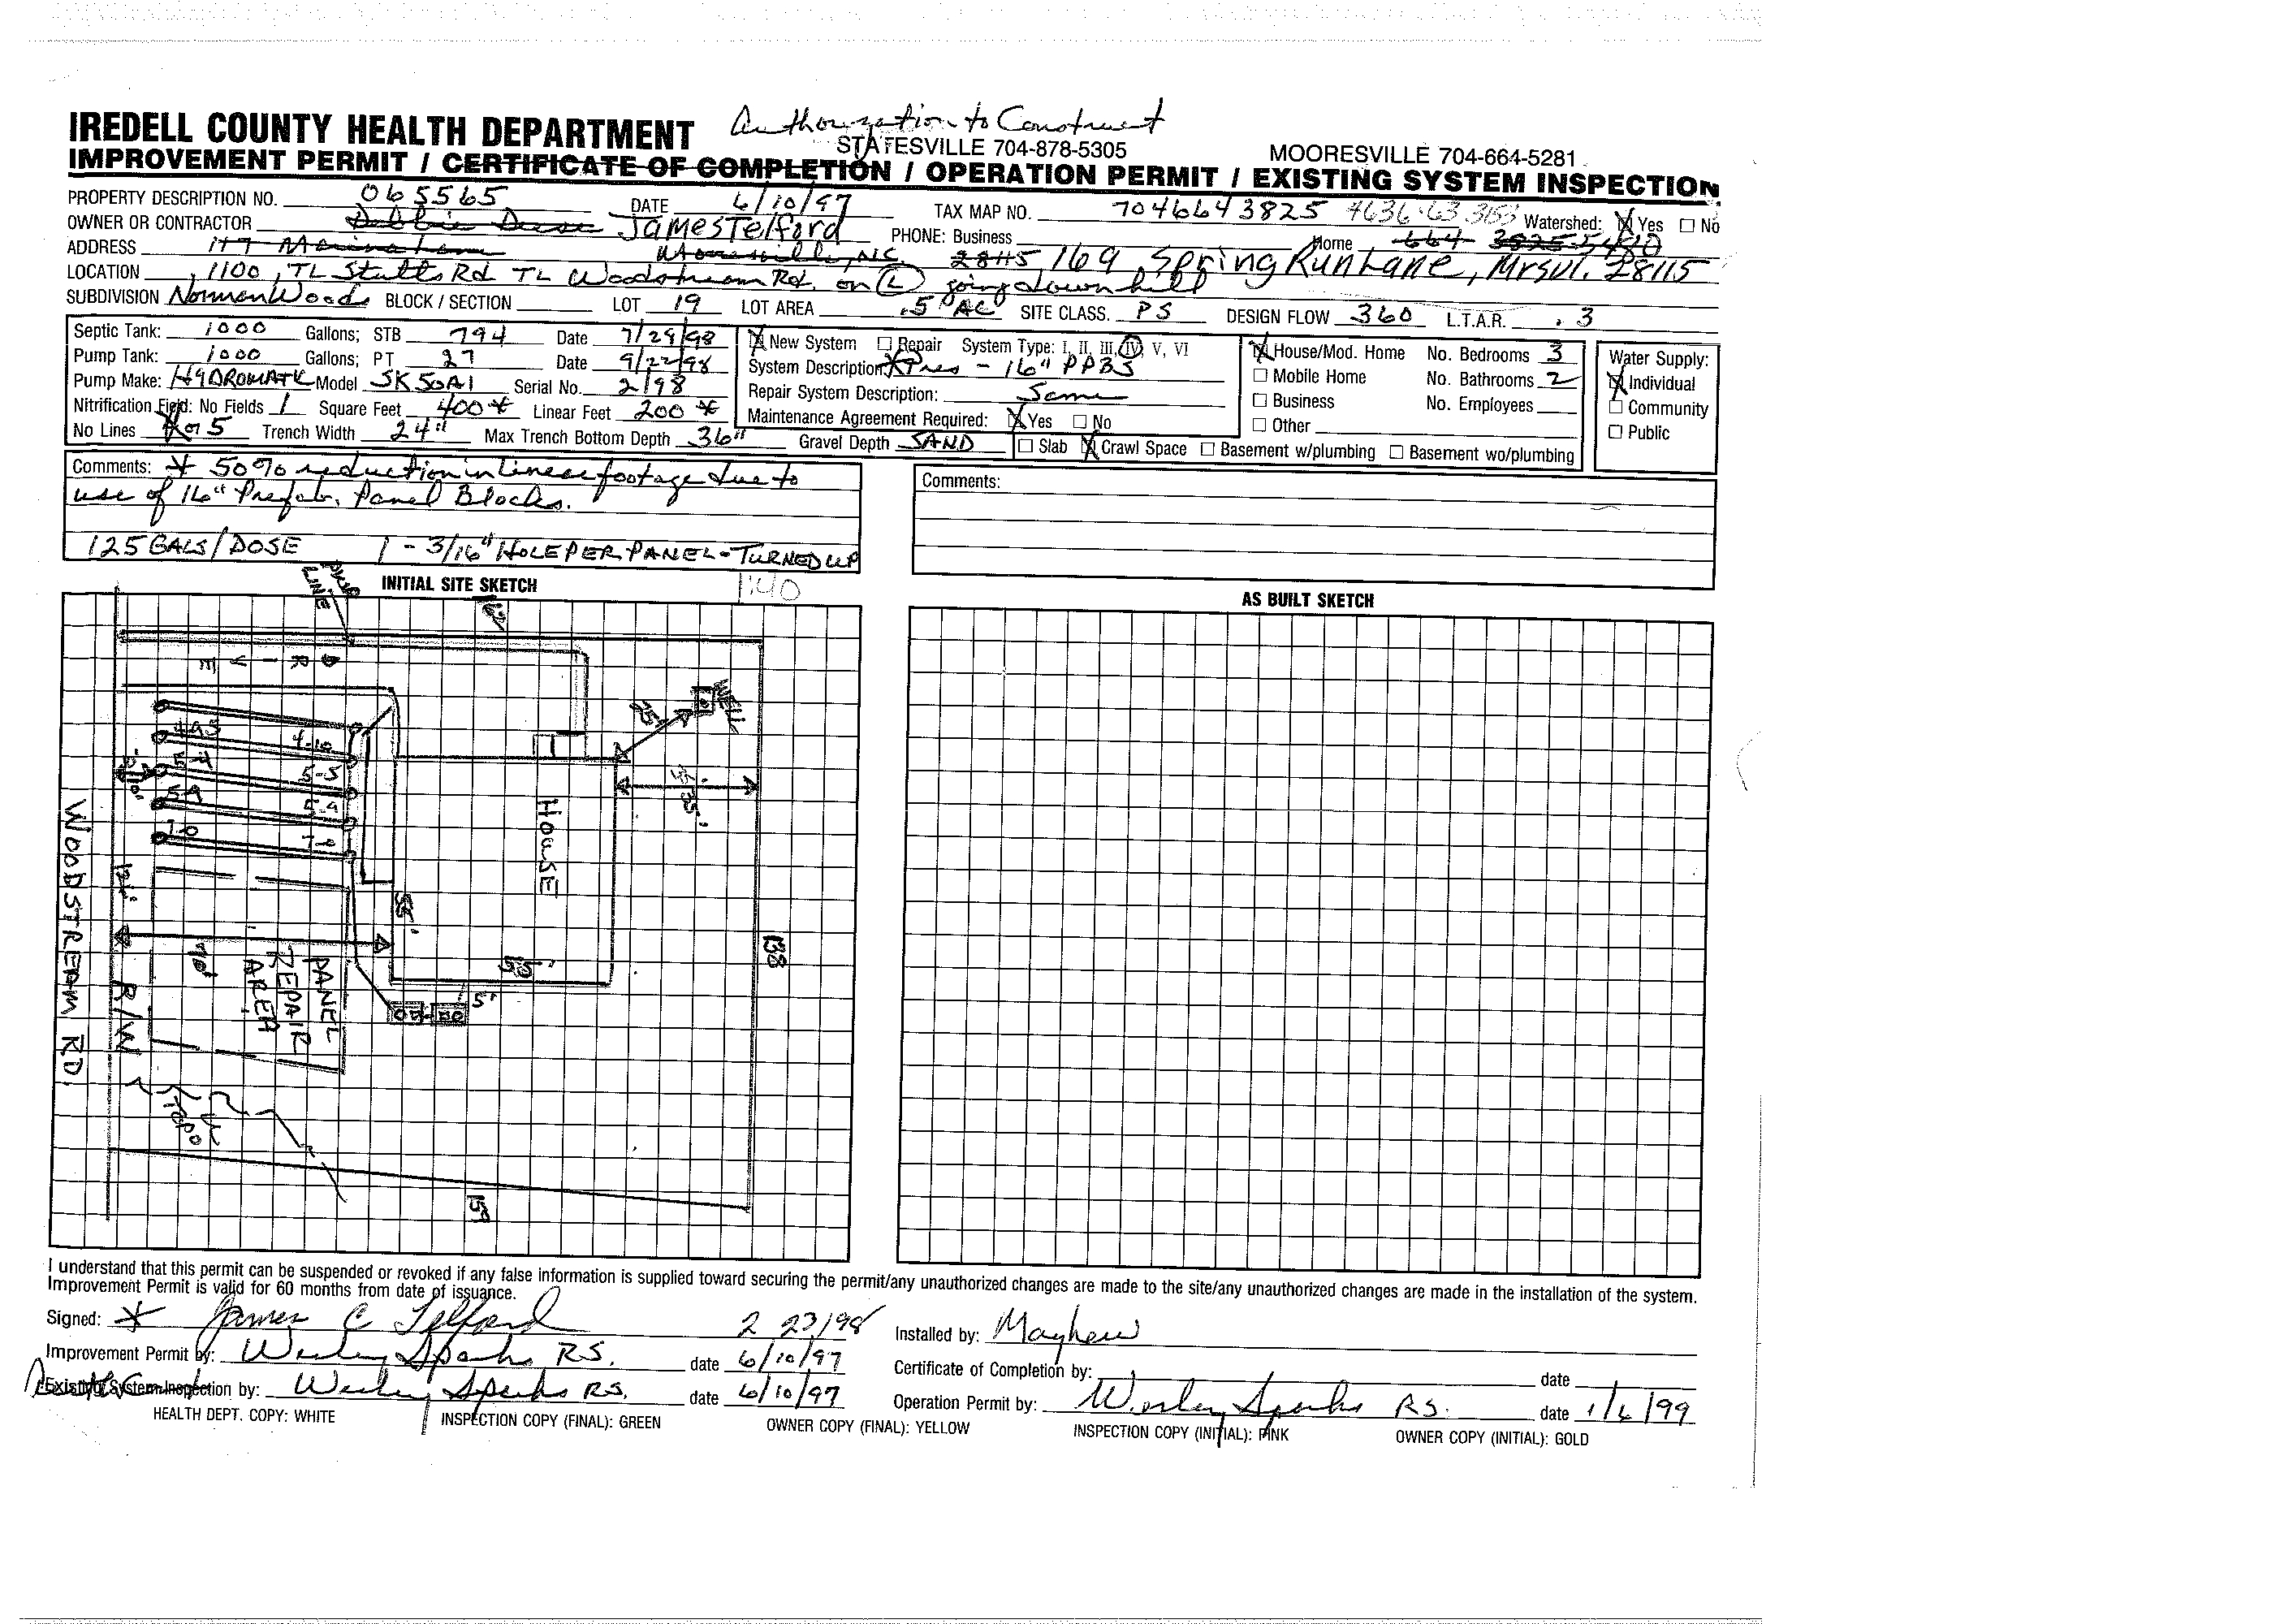 Authorization to Construct
IREDELL COUNTY HEALTH DEPARTMENT
STATESVILLE 704-878-5305 MOORESVILLE 704-664-5281
IMPROVEMENT PERMIT / CERTIFICATE OF COMPLETION / OPERATION PERMIT / EXISTING SYSTEM INSPECTION
PROPERTY DESCRIPTION NO. 065565 DATE 6/10/97 TAX MAP NO. 7046643825 Watershed: X Yes ☐ No
OWNER OR CONTRACTOR Debbie Deese James Telford PHONE: Business Home 664-
ADDRESS 117 Mooresville, NC. 28115 169 Spring Run Lane, Mrsvl. 28115
LOCATION 1100, TL Stutts Rd TL Woodstream Rd. on (L) going down hill
SUBDIVISION Norman Woods BLOCK / SECTION LOT 19 LOT AREA .5 AC SITE CLASS. PS DESIGN FLOW 360 L.T.A.R. .3
Septic Tank: 1000 Gallons; STB 794 Date 7/29/98
Pump Tank: 1000 Gallons; PT 27 Date 9/22/98
Pump Make: HYDROMATIC Model SK50A1 Serial No. 2/98
Nitrification Field: No Fields 1 Square Feet 400* Linear Feet 200*
No Lines 5 Trench Width 24" Max Trench Bottom Depth 36" Gravel Depth SAND
X New System ☐ Repair System Type: I, II, III, IV, V, VI
System Description Pres - 16" PPBS
Repair System Description: Same
Maintenance Agreement Required: X Yes ☐ No
X House/Mod. Home No. Bedrooms 3
☐ Mobile Home No. Bathrooms 2
☐ Business No. Employees
☐ Other
☐ Slab X Crawl Space ☐ Basement w/plumbing ☐ Basement wo/plumbing
Water Supply:
X Individual
☐ Community
☐ Public
Comments: * 50% reduction in linear footage due to
use of 16" Prefab. Panel Blocks.
125 GALS/DOSE 1 - 3/16" HOLE PER PANEL - TURNED UP
Comments:
INITIAL SITE SKETCH
1:40
AS BUILT SKETCH
LINE
DRIVE
WELL
25'
4-10
5-5
5-9
7-0
HOUSE
55'
5'
138
PANEL
REPAIR
AREA
R/W
WOODSTREAM RD.
159
I understand that this permit can be suspended or revoked if any false information is supplied toward securing the permit/any unauthorized changes are made to the site/any unauthorized changes are made in the installation of the system.
Improvement Permit is valid for 60 months from date of issuance.
Signed: * James C Telford 2 23/98
Improvement Permit by: Wesley Sparks RS. date 6/10/97
Existing System Inspection by: Wesley Sparks RS. date 6/10/97
Installed by: Mayhew
Certificate of Completion by: date
Operation Permit by: Wesley Sparks RS. date 1/6/99
HEALTH DEPT. COPY: WHITE INSPECTION COPY (FINAL): GREEN OWNER COPY (FINAL): YELLOW INSPECTION COPY (INITIAL): PINK OWNER COPY (INITIAL): GOLD